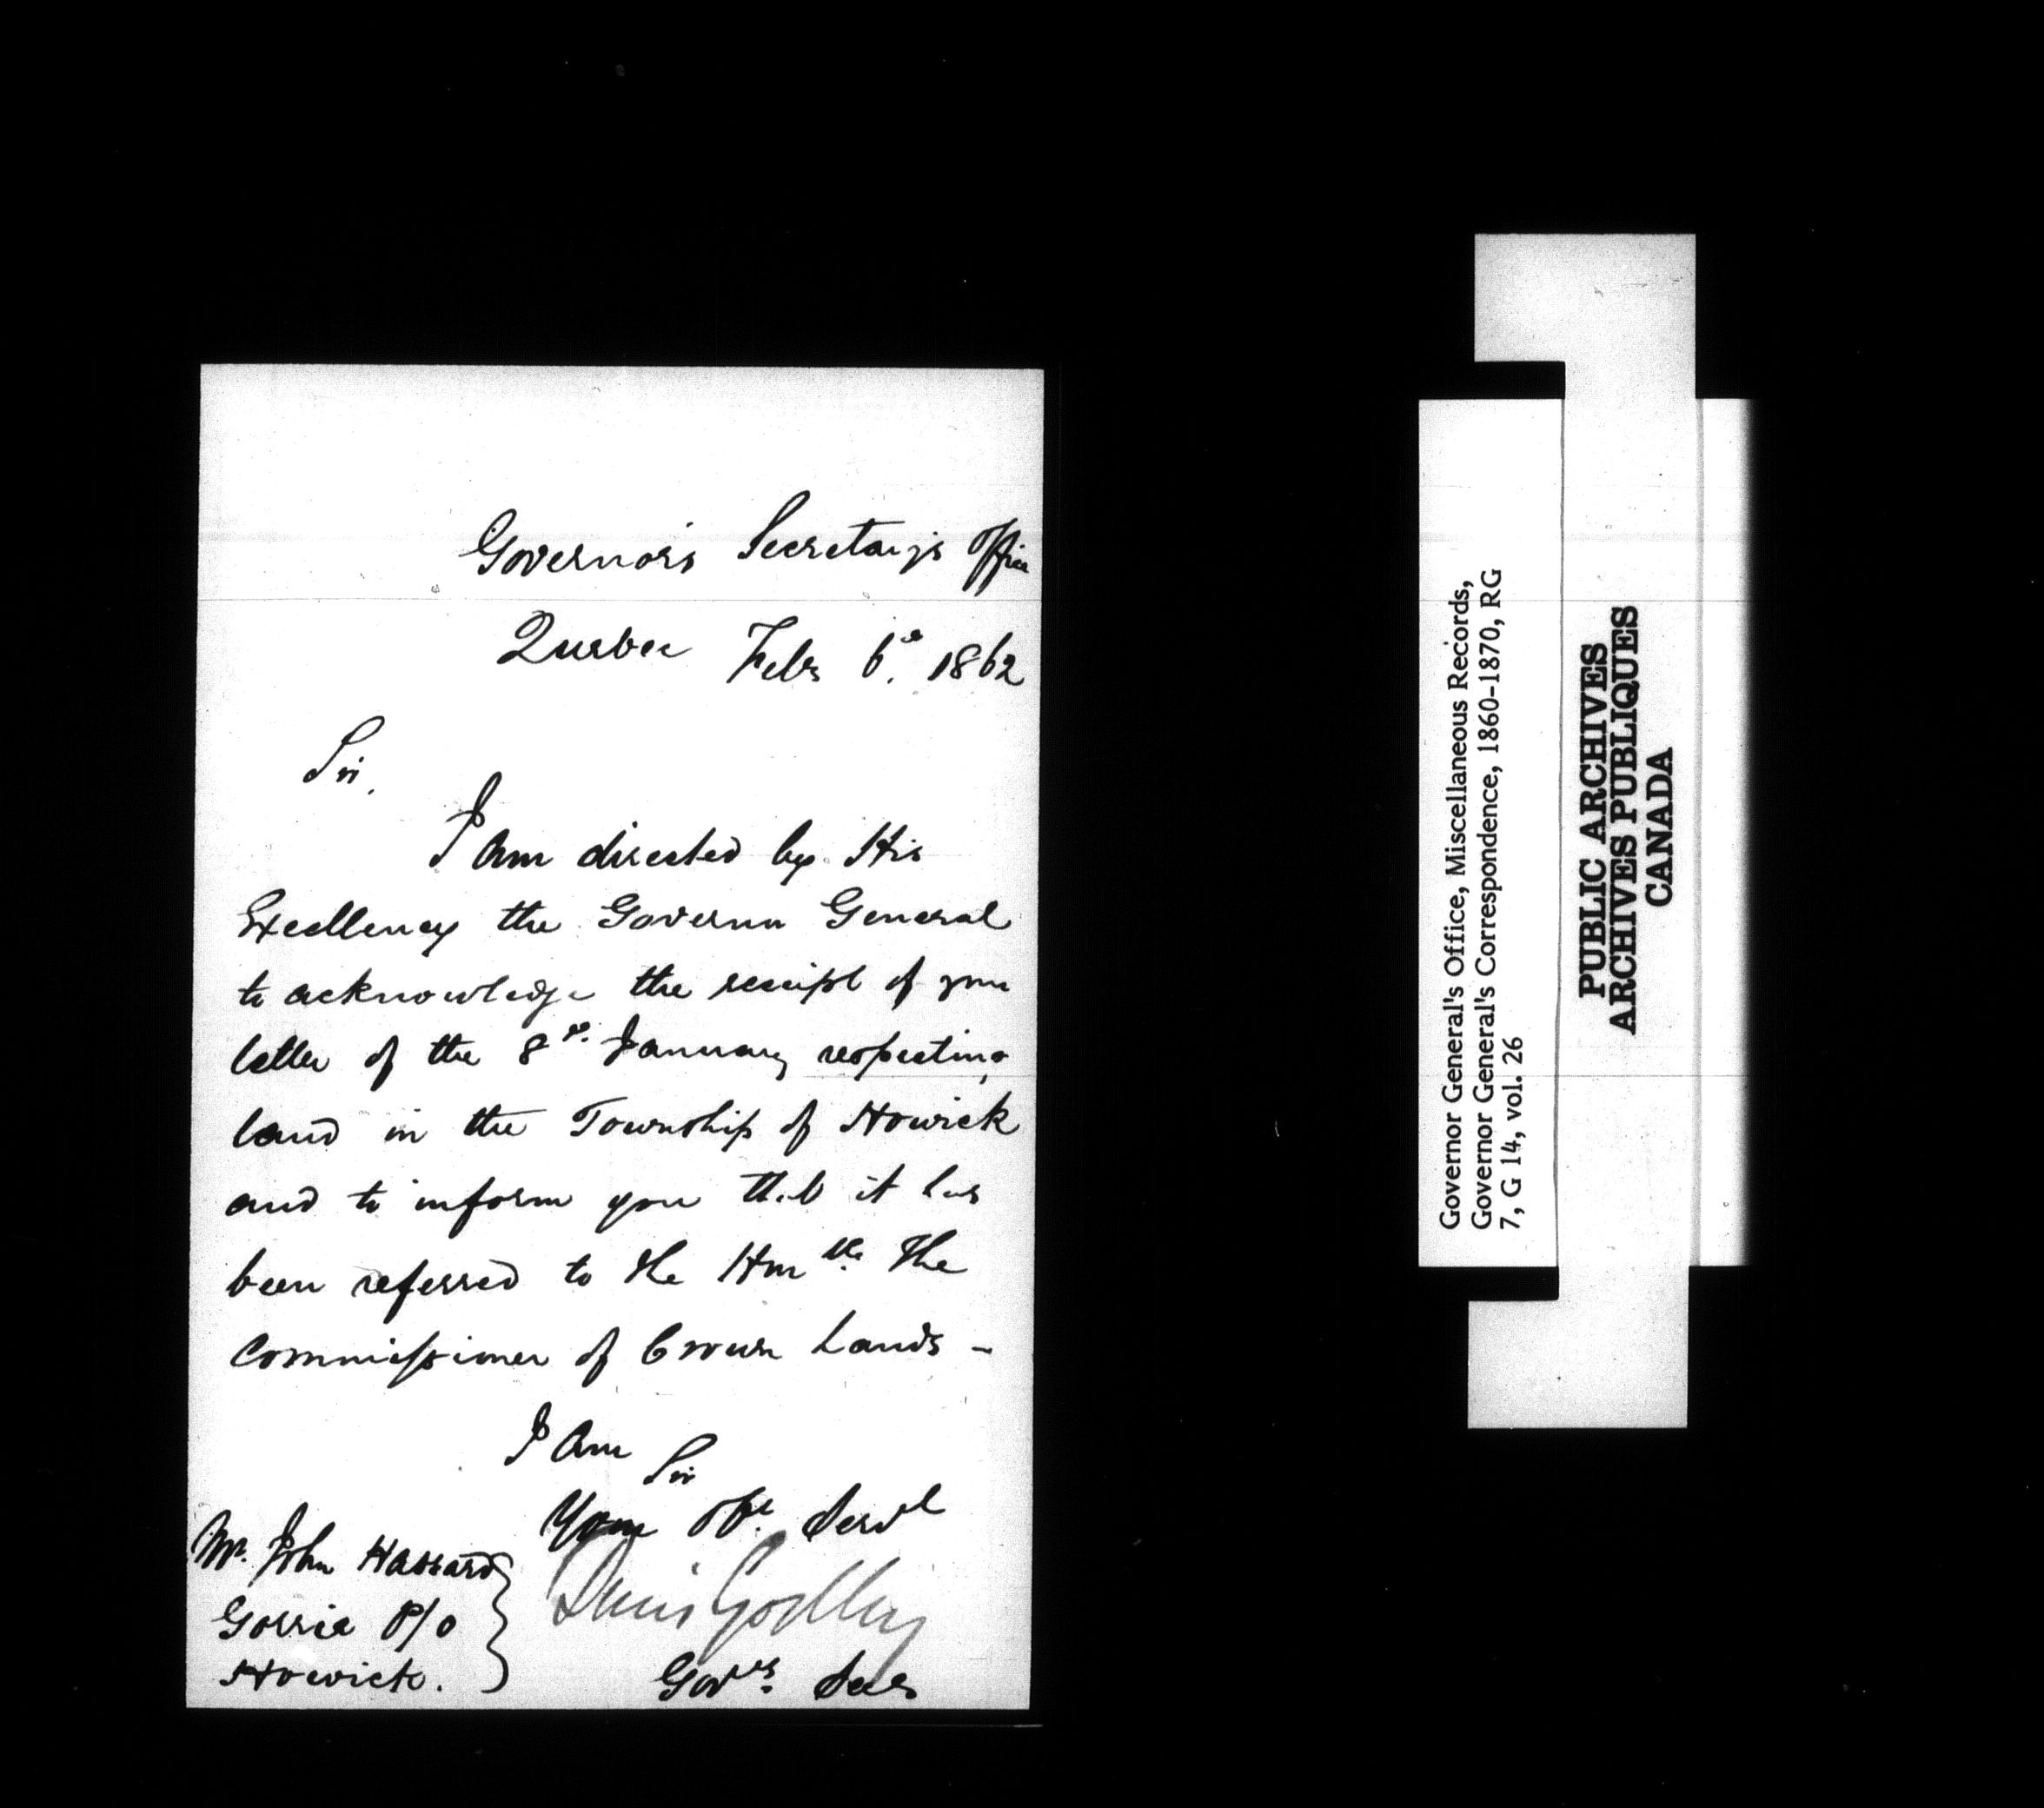 Governor's Secretary's Office
Quebec Feby 6th. 1862
Sir,
I am directed by His
Excellency the Governor General
to acknowledge the receipt of your
letter of the 8th. January respecting
land in the Township of Howick
and to inform you that it has
been referred to the Honble. The
Commissioner of Crown Lands -
I am
Sir
Your Obt. Servt
Denis Godley
Govrs. Secy
Mr. John Hassard
Gorrie P/O
Howick.
Governor General's Office, Miscellaneous Records,
Governor General's Correspondence, 1860-1870, RG
7, G 14, vol. 26
PUBLIC ARCHIVES
ARCHIVES PUBLIQUES
CANADA